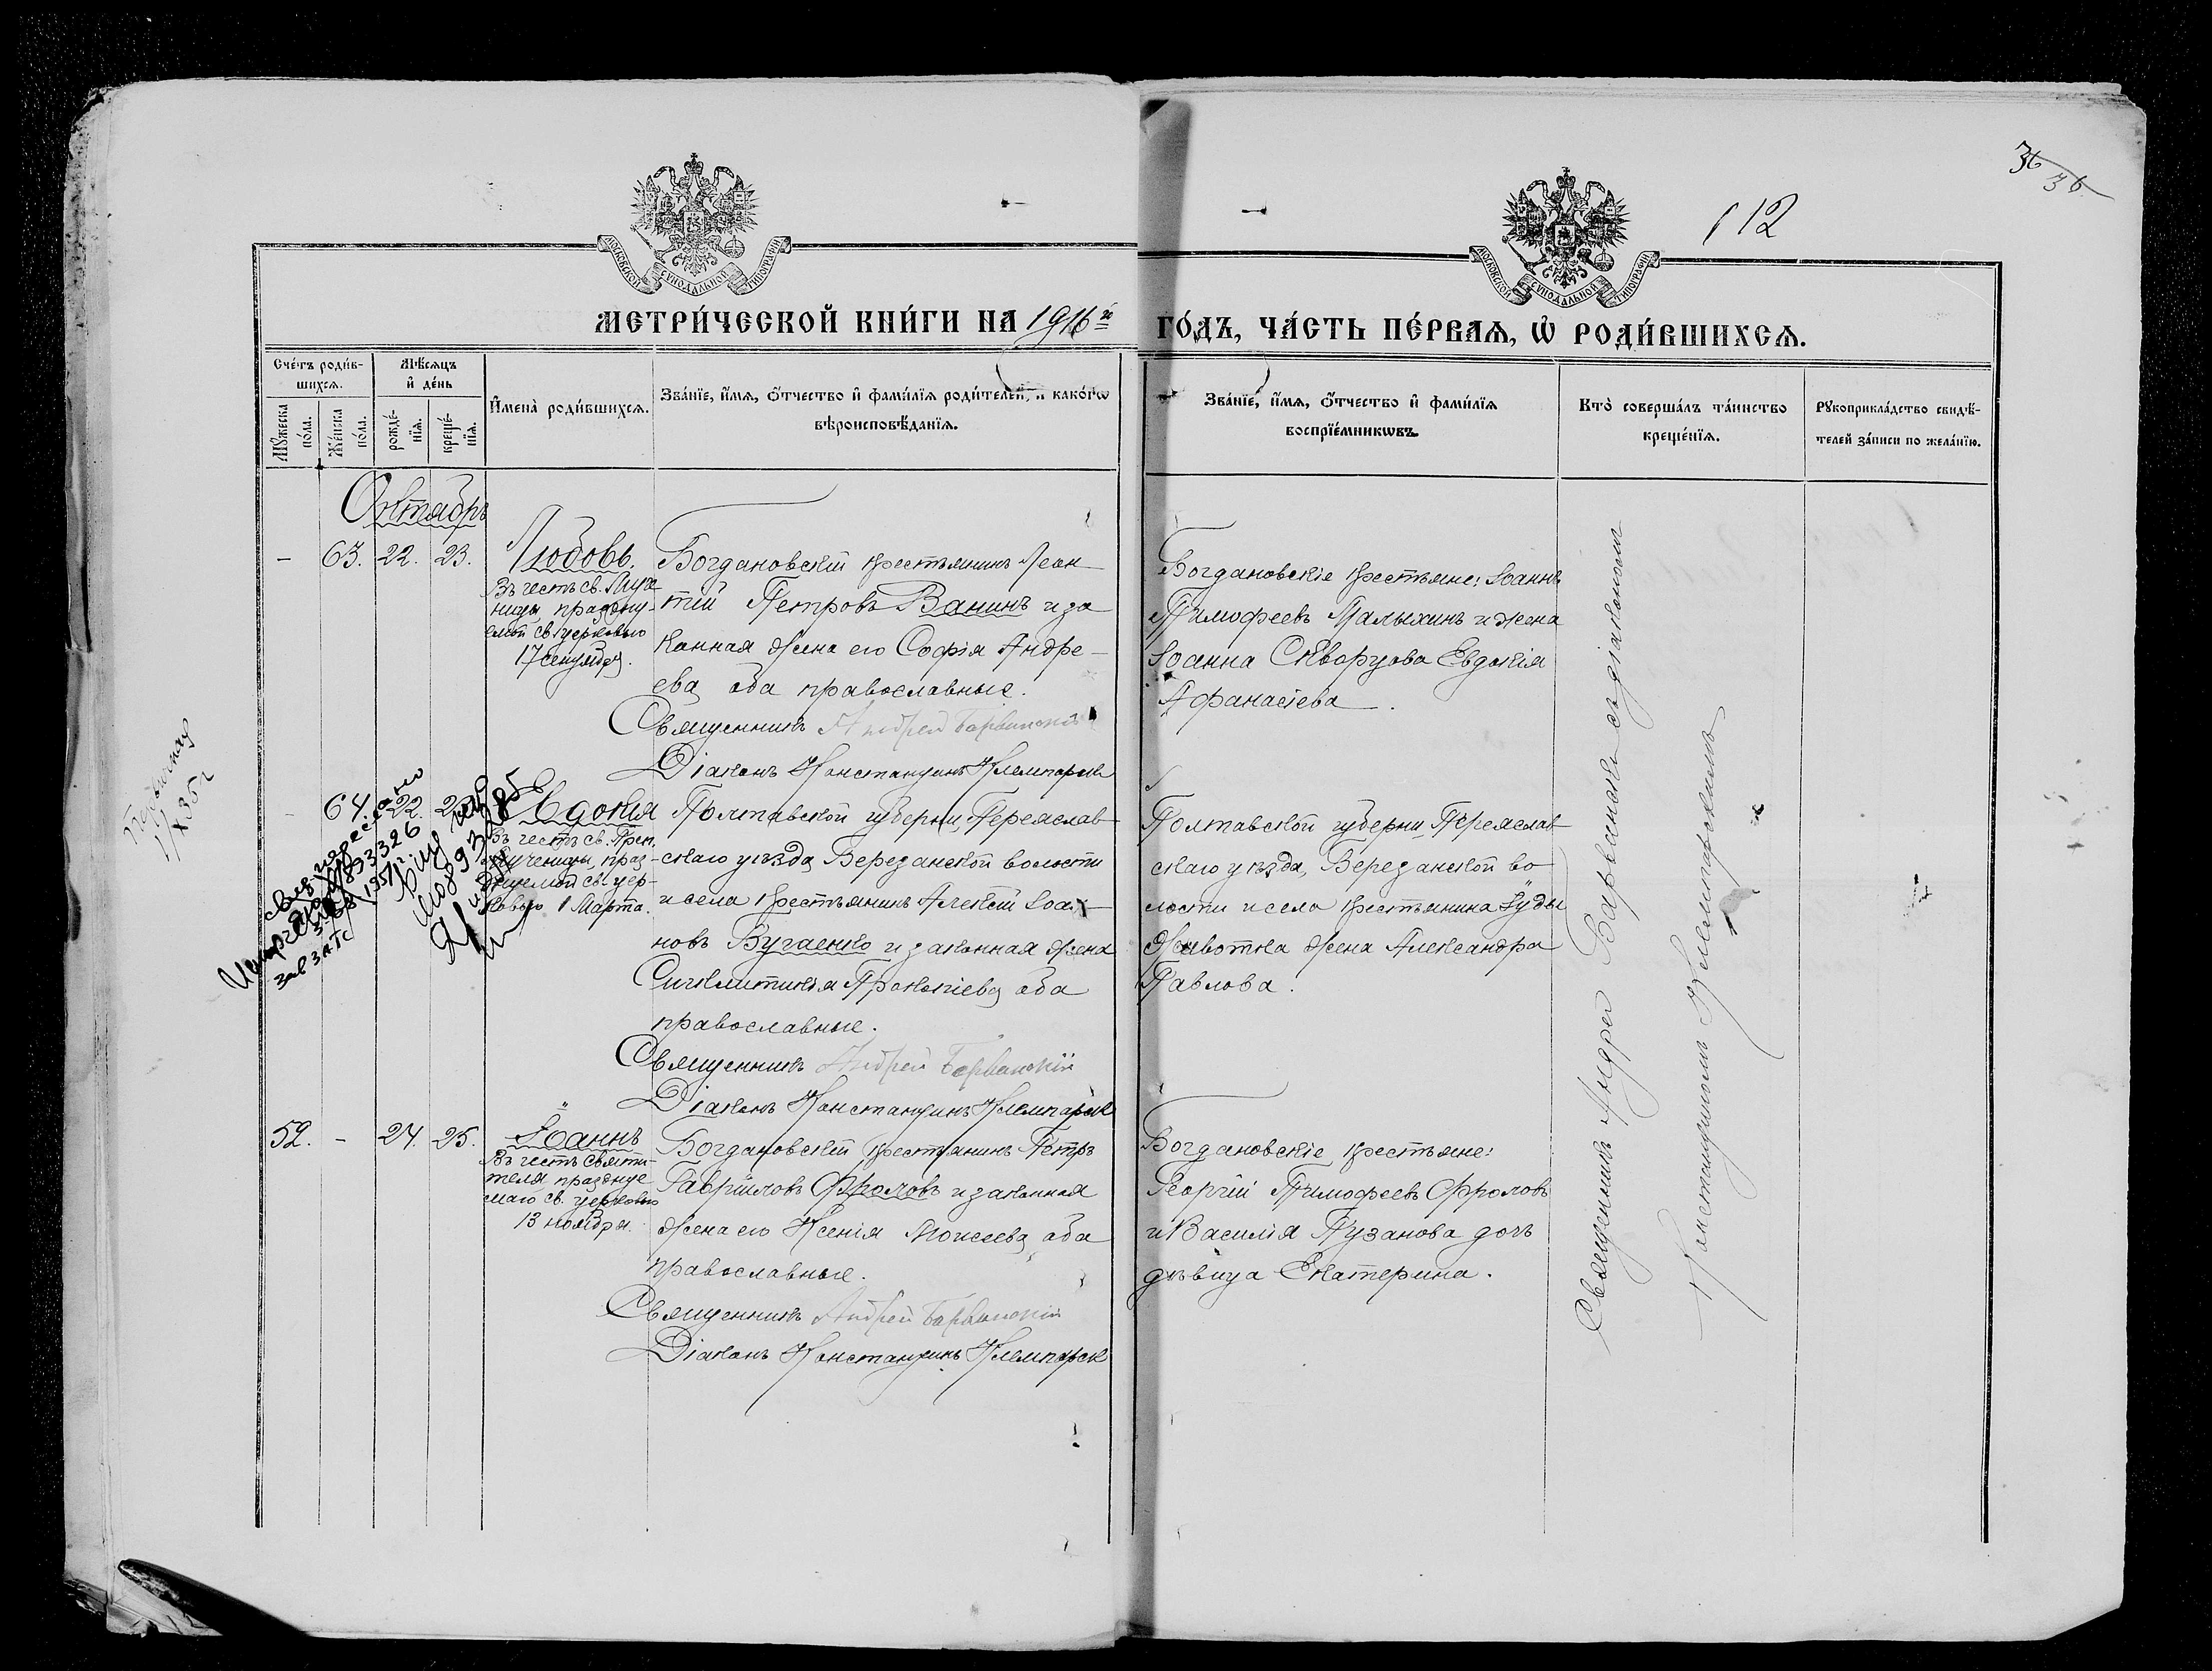 36
36
112
МОСКОВСКОЙ СѴНОДАЛЬНОЙ ТИПОГРАФІИ
МОСКОВСКОЙ СѴНОДАЛЬНОЙ ТИПОГРАФІИ
МЕТРИ́ЧЕСКОЙ КНИ́ГИ НА 1916й
ГО́ДЪ, ЧА́СТЬ ПЕ́РВАѦ, Ѡ҆ РОДИ́ВШИХСѦ.
Сче́тъ роди́в-
шихсѧ.
Мꙋ́жеска по́ла.
Же́нска по́ла.
Мѣ́сѧцъ
и҆ де́нь
рожде́-
нїѧ.
креще́-
нїѧ.
И҆мена̀ роди́вшихсѧ.
Зва́нїе, и҆́мѧ, ѻ҆́тчество и҆ фами́лїѧ роди́телей, и҆ како́гѡ
вѣроисповѣ́данїѧ.
Зва́нїе, и҆́мѧ, ѻ҆́тчество и҆ фами́лїѧ
воспрїе́мникѡвъ.
Кто̀ соверша́лъ та́инство
креще́нїѧ.
Рꙋкоприкла́дство свидѣ́-
телей за́писи по жела́нїю.
Октябрь
- 63. 22. 23.
Любовь.
Въ честь св. Муче
ницы празdну-
емой св. церковью
17 сентября.
Богдановскій крестьянинъ Леон
тій Петровъ Ванинъ и за
конная жена его Софія Андре-
ева, оба православные.
Священникъ Андрей Барвинскій
Діаконъ Константинъ Клемпарск
Богдановскіе крестьяне: Іоаннъ
Тимофеевъ Малыхинъ и жена
Іоанна Скворцова Евдокія
Афанасіева.
64. 22.
Евдокія
Въ честь св. Преп.
мученицы, праз-
днуемой св. цер-
ковью 1 Марта.
Полтавской губерніи, Переяслав-
скаго уѣзда, Березанской волости
и села крестьянинъ Алексій Іоан-
новъ Бугаенко и законная жена
Синклитикія Прокопіева, оба
православные.
Священникъ Андрей Барвинскій
Діаконъ Константинъ Клемпарск
Полтавской губерніи, Переяслав-
скаго уѣзда, Березанской во
лости и села крестьянина Іуды
Животка жена Александра
Павлова.
52. - 24. 25.
Іоаннъ
Въ честь Святи-
теля празднуе
маго св. церковью
13 ноября.
Богдановскій крестьянинъ Петръ
Гавріиловъ Фроловъ и законная
жена его Ксенія Моисеева, оба
православные.
Священникъ Андрей Барвинскій
Діаконъ Константинъ Клемпарск
Богдановскіе крестьяне:
Георгій Тимофеевъ Фроловъ
и Василія Пузанова дочь
дѣвица Екатерина.
Священникъ Андрей Барвинскій съ діакономъ
Константиномъ Клемпарскимъ